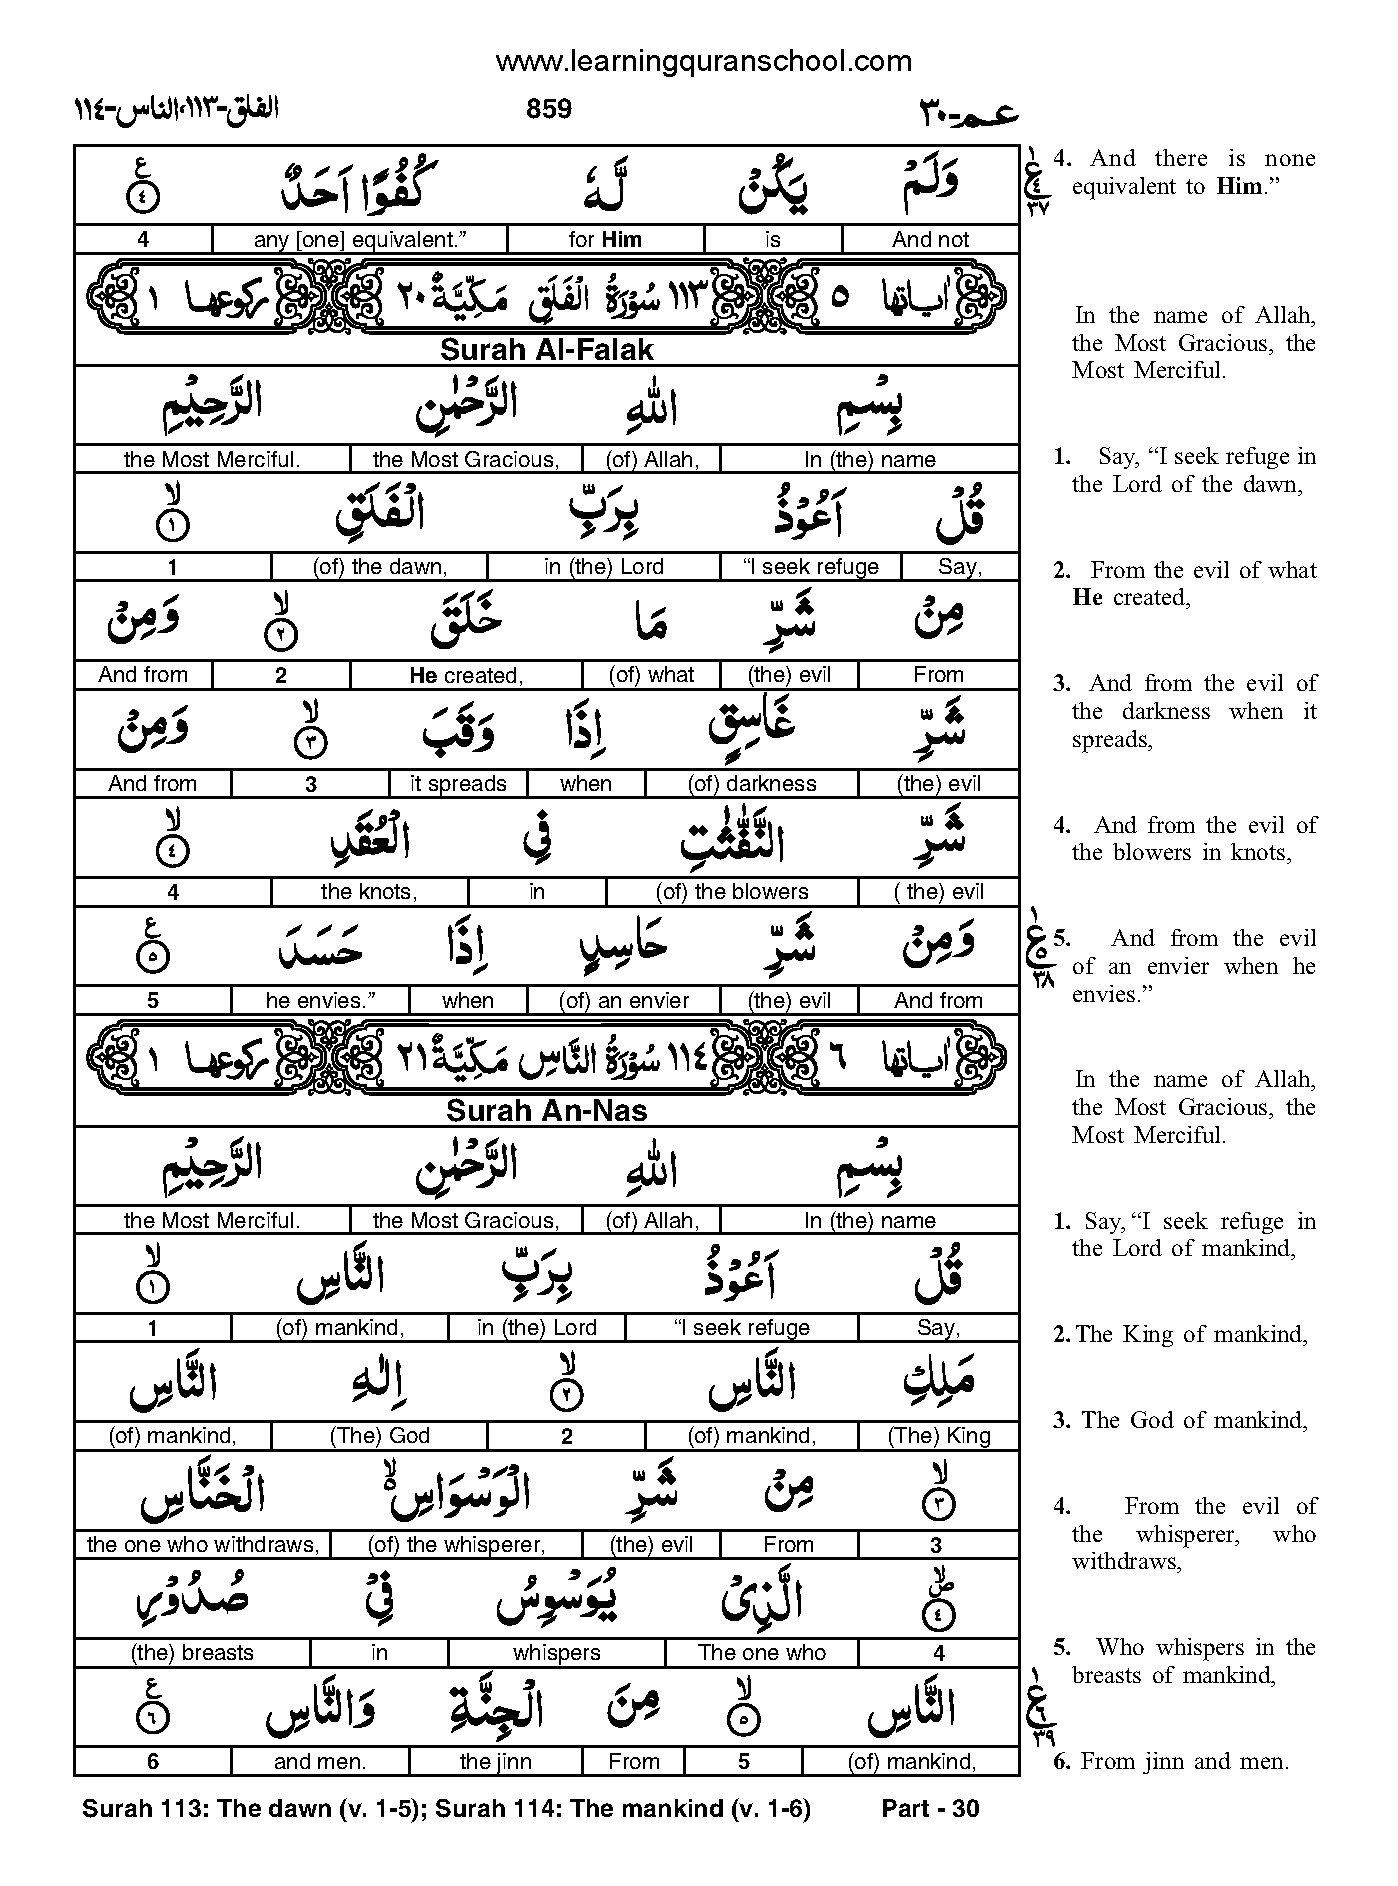 www.learningquranschool.com
الفلق-١١٣،الناس-١١٤ 859 عـم-٣٠
وَلَمْ يَكُنْ لَّهٗ كُفُوًا اَحَدٌ ع ٤
And not is for Him any [one] equivalent.” 4
١ ع ٤ ٣٧
4. And there is none
equivalent to Him.”
اٰیاتها ٥ ١١٣ سُوْرَةُ الْفَلَقِ مَكِّيَّةٌ ٢٠ ركوعها ١
Surah Al-Falak
بِسْمِ اللّٰهِ الرَّحْمٰنِ الرَّحِيْمِ
In (the) name (of) Allah, the Most Gracious, the Most Merciful.
In the name of Allah,
the Most Gracious, the
Most Merciful.
قُلْ اَعُوْذُ بِرَبِّ الْفَلَقِ لا ١
Say, “I seek refuge in (the) Lord (of) the dawn, 1
1. Say, “I seek refuge in
the Lord of the dawn,
مِنْ شَرِّ مَا خَلَقَ لا ٢ وَمِنْ
From (the) evil (of) what He created, 2 And from
2. From the evil of what
He created,
شَرِّ غَاسِقٍ اِذَا وَقَبَ لا ٣ وَمِنْ
(the) evil (of) darkness when it spreads 3 And from
3. And from the evil of
the darkness when it
spreads,
شَرِّ النَّفّٰثٰتِ فِي الْعُقَدِ لا ٤
( the) evil (of) the blowers in the knots, 4
4. And from the evil of
the blowers in knots,
وَمِنْ شَرِّ حَاسِدٍ اِذَا حَسَدَ ع ٥
And from (the) evil (of) an envier when he envies.” 5
١ ع ٥ ٣٨
5. And from the evil
of an envier when he
envies.”
اٰیاتها ٦ ١١٤ سُوْرَةُ النَّاسِ مَكِّيَّةٌ ٢١ ركوعها ١
Surah An-Nas
بِسْمِ اللّٰهِ الرَّحْمٰنِ الرَّحِيْمِ
In (the) name (of) Allah, the Most Gracious, the Most Merciful.
In the name of Allah,
the Most Gracious, the
Most Merciful.
قُلْ اَعُوْذُ بِرَبِّ النَّاسِ لا ١
Say, “I seek refuge in (the) Lord (of) mankind, 1
1. Say, “I seek refuge in
the Lord of mankind,
مَلِكِ النَّاسِ لا ٢ اِلٰهِ النَّاسِ
(The) King (of) mankind, 2 (The) God (of) mankind,
2. The King of mankind,
3. The God of mankind,
لا ٣ مِنْ شَرِّ الْوَسْوَاسِ الْخَنَّاسِ
3 From (the) evil (of) the whisperer, the one who withdraws,
4. From the evil of
the whisperer, who
withdraws,
لا ص ٤ الَّذِيْ يُوَسْوِسُ فِيْ صُدُوْرِ
4 The one who whispers in (the) breasts
5. Who whispers in the
breasts of mankind,
النَّاسِ لا ٥ مِنَ الْجِنَّةِ وَالنَّاسِ ع ٦
(of) mankind, 5 From the jinn and men. 6
١ ع ٦ ٣٩
6. From jinn and men.
Surah 113: The dawn (v. 1-5); Surah 114: The mankind (v. 1-6) Part - 30